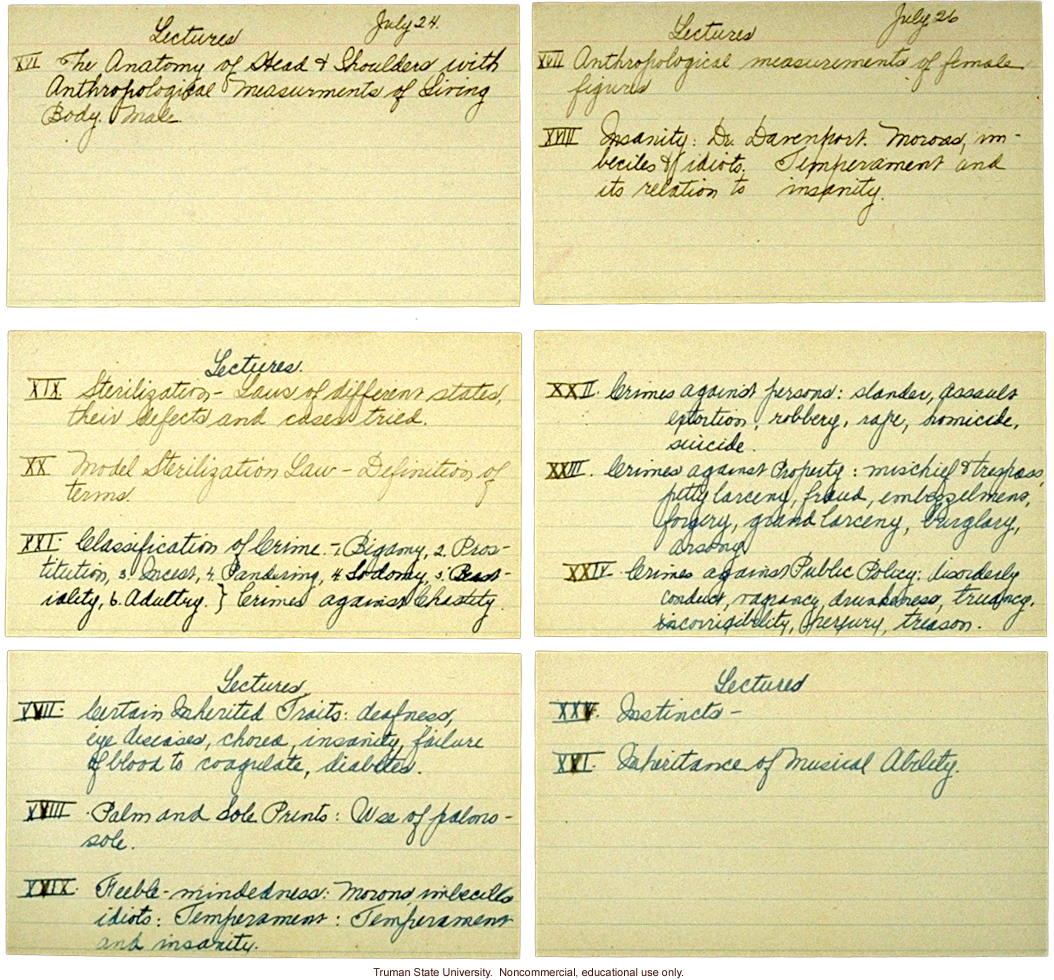 Lectures July 24.
XVI The Anatomy of Head & Shoulders with
Anthropological Measurments of Living
Body. Male
Lectures July 26
XVII Anthropological measurements of female
figures
XVIII Insanity: Dr. Davenport. Morons, im-
beciles & idiots. Temperament and
its relation to insanity.
Lectures.
XIX. Sterilization - Laws of different states,
their defects and cases tried.
XX Model Sterilization Law - Definition of
terms.
XXI. Classification of Crime. - 1. Bigamy, 2. Pros-
titution, 3. Incest, 4. Pandering, 4 Sodomy, 5. Beast-
iality, 6. Adultry. } Crimes against Chastity.
XXII. Crimes against persons: slander, assault
extortion, robbery, rape, homicide,
suicide.
XXIII. Crimes against Property: mischief & trespass,
petty larceny, fraud, embezzelment,
forgery, grand larceny, burglary,
arson.
XXIV. Crimes against Public Policy: disorderly
conduct, vagrancy, drunkeness, truancy,
incorrigibility, perjury, treason.
Lectures
XVII. Certain Inherited Traits: deafness,
eye diseases, chorea, insanity, failure
of blood to coagulate, diabetes.
XVIII Palm and Sole Prints: Use of
sole.
XVIX. Feeble-mindedness: Morons, imbecills
idiots: Temperament: Temperament
and insanity.
Lectures
XXV. Instincts -
XVI. Inheritance of Musical Ability.
Truman State University. Noncommercial, educational use only.